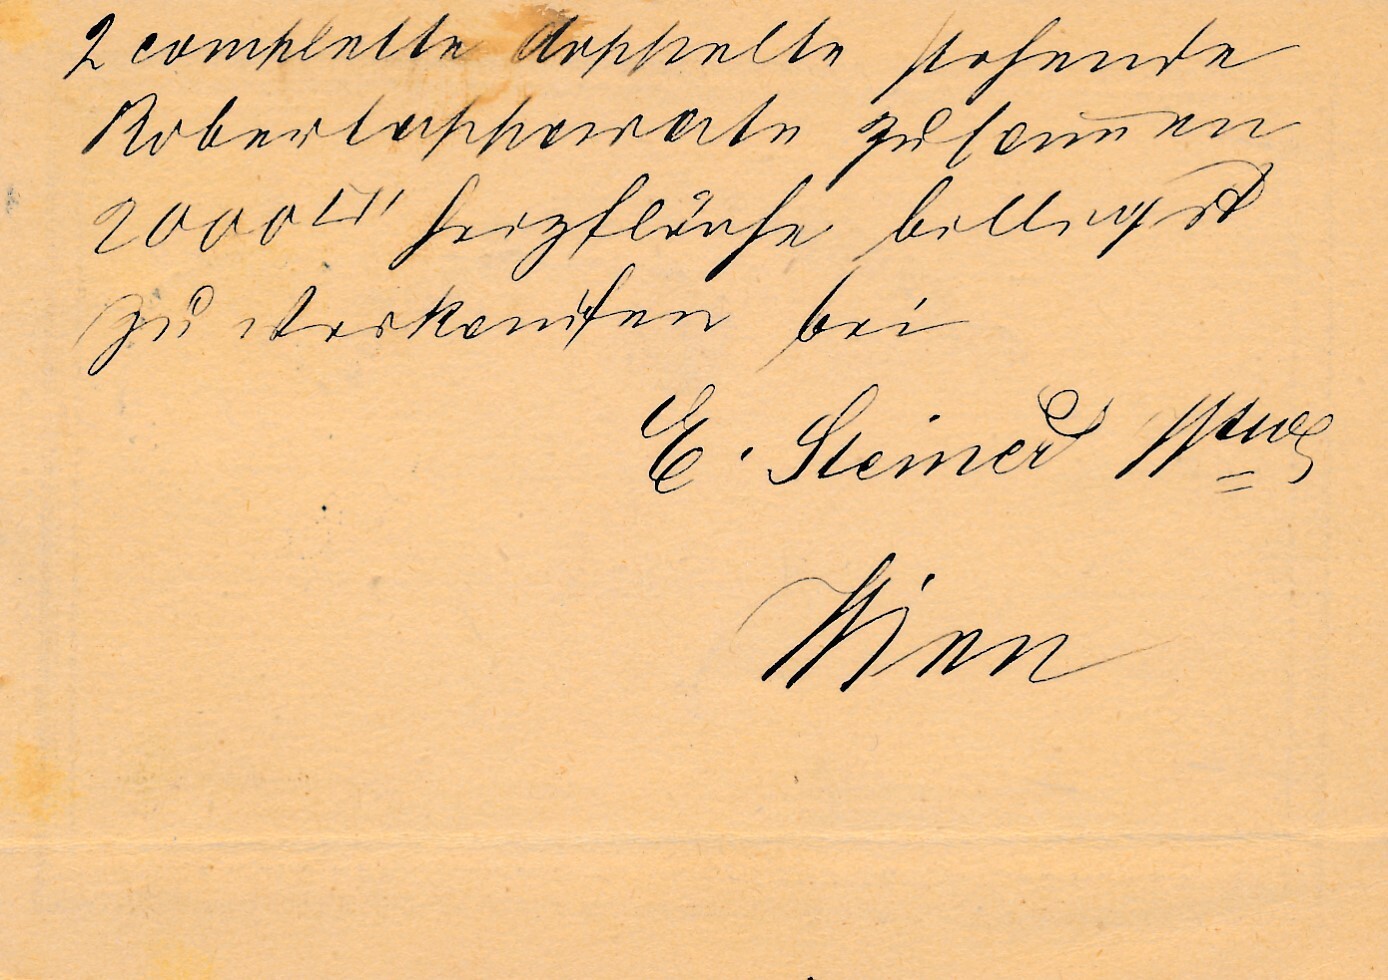 2 complette doppelte stehende
Robertapparate zusam̅en
2000 □' Heizfläche billigst
zu verkaufen bei
E. Steiner Wwe
Wien